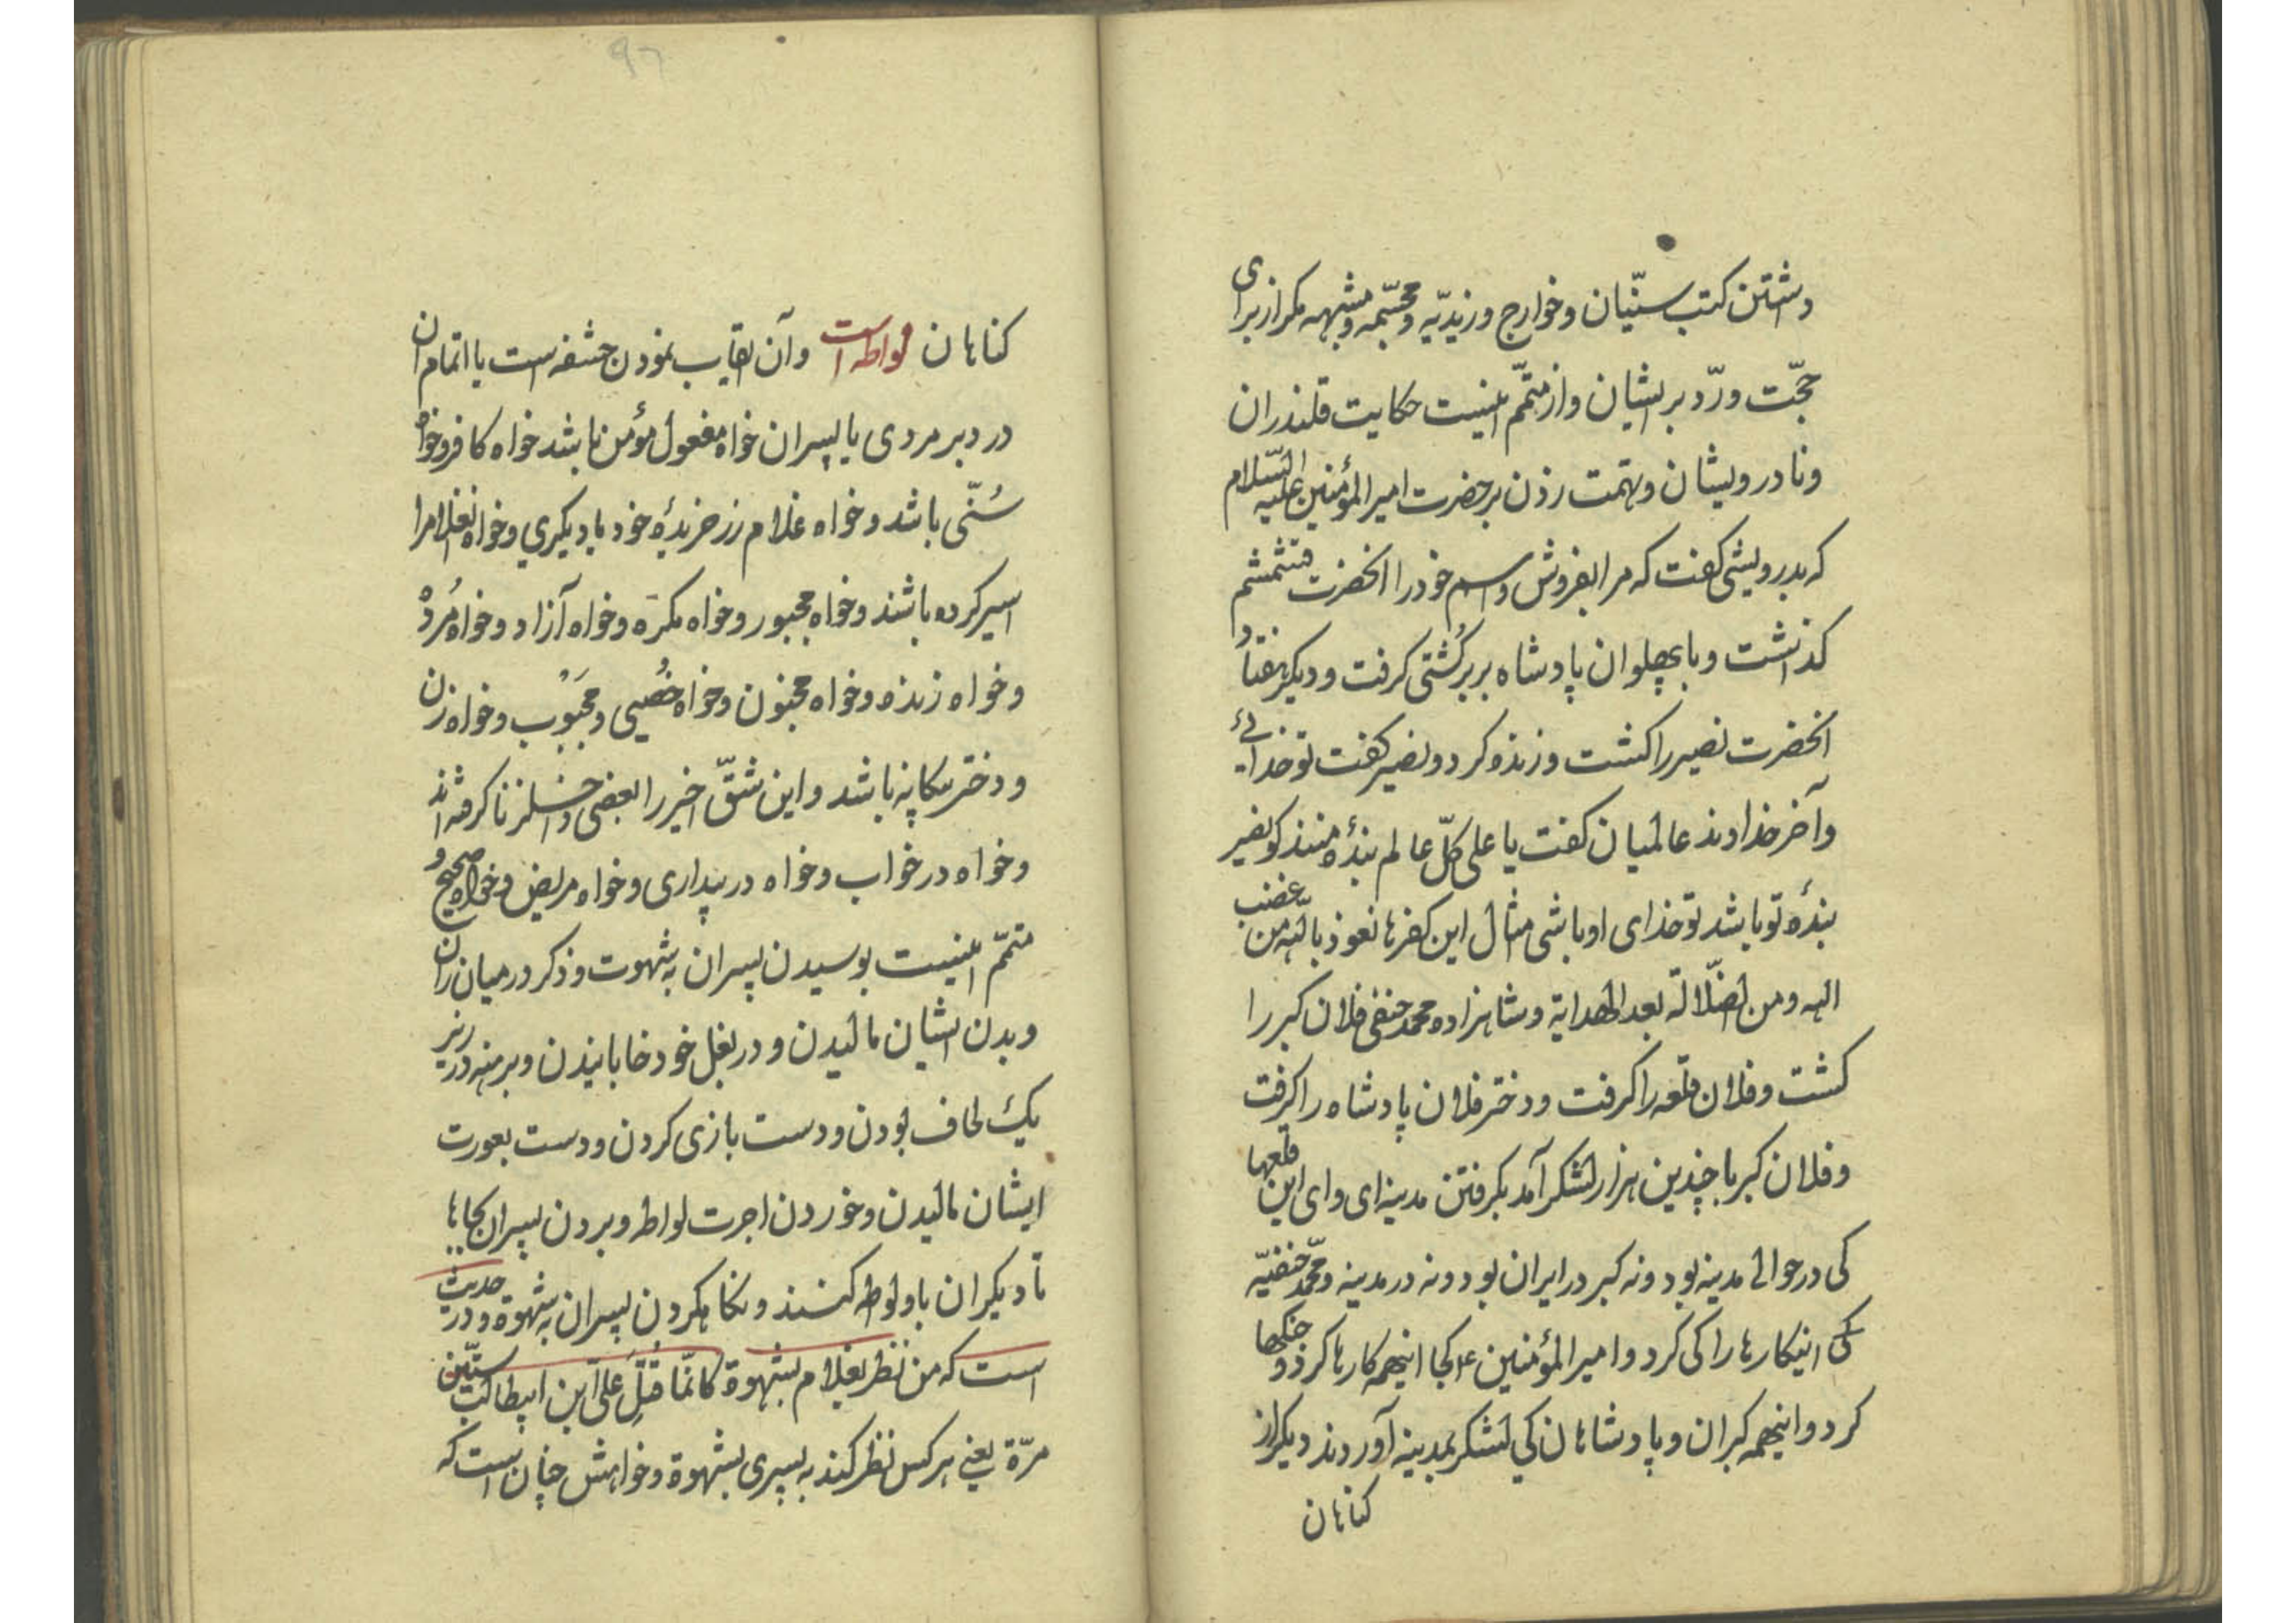 داشتن کتب سنّیان و خوارج و زیدیّه و مجسّمه و مشبهه مکر از برای
حجّت و ردّ بر ایشان و از متمّم اینست حکایت قلندران
و نادرویشان و تهمت زدن بر حضرت امیر المؤمنین علیه السّلام
که بدرویشی کفت که مرا بفروش و اسم خود را انحضرت قشمشم
کذاشت و با پهلوان پادشاه بربر کُشتی کرفت و دیکر هفتاد
انحضرت نصیر را کشت و زنده کرد و نصیر کفت تو خدائی
و آخر خداوند عالمیان کفت یا علی کلّ عالم بندهٔ منند کو نصیر
بندهٔ تو باشد تو خدای او باشی مثال این کفرها نعوذ باللّه من غضب
اللّه و من الضّلالة بعد الهدایة و شاهزاده محمد حنفی فلان کبر را
کشت و فلان قلعه را کرفت و دختر فلان پادشاه را کرفت
و فلان کبر با چندین هزار لشکر آمد بکرفتن مدینه ای وای این قلعها
کی در حوالی مدینه بود و نه کبر در ایران بود و نه در مدینه و محمّد حنفیّه
کی اینکارها را کی کرد و امیر المؤمنین ع کجا اینهمه کارها کرد و جنکها
کرد و اینهمه کبران و پادشاهان کی لشکر بمدینه آوردند دیکر از
کناهان
۹۶
کناهان لواطه است و آن غایب نمودن حشفه است یا اتمام ان
در دبر مردی یا پسران خواه مفعول مؤمن باشد خواه کافر و خواه
سُنّی باشد و خواه غلام زر خریدهٔ خود یا دیکری و خواه انغلامرا
اسیر کرده باشند و خواه مجبور و خواه مکرَه و خواه آزاد و خواه مُرده
و خواه زنده و خواه مجنون و خواه خُصیی و مجَبُوب و خواه زن
و دختر بیکانه باشد و این شقّ اخیر را بعضی داخل زنا کرفته اند
و خواه در خواب و خواه در بیداری و خواه مریض و خواه صحیح و
متمّم اینست بوسیدن پسران به شهوت و ذکر در میان ران
و بدن ایشان مالیدن و در بغل خود خابانیدن و برهنه در زیر
یک لحاف بودن و دست بازی کردن و دست بعورت
ایشان مالیدن و خوردن اجرت لواط و بردن پسران بجاها
تا دیکران با او لوطه کنند و نکاه کردن پسران به شهوة و در حدیث
است که من نظر بغلام بشهوة کانّما قتل علیّ ابن ابیطالب ستّین
مرّة یعنی هر کس نظر کند به پسری بشهوة و خواهش چنان است که